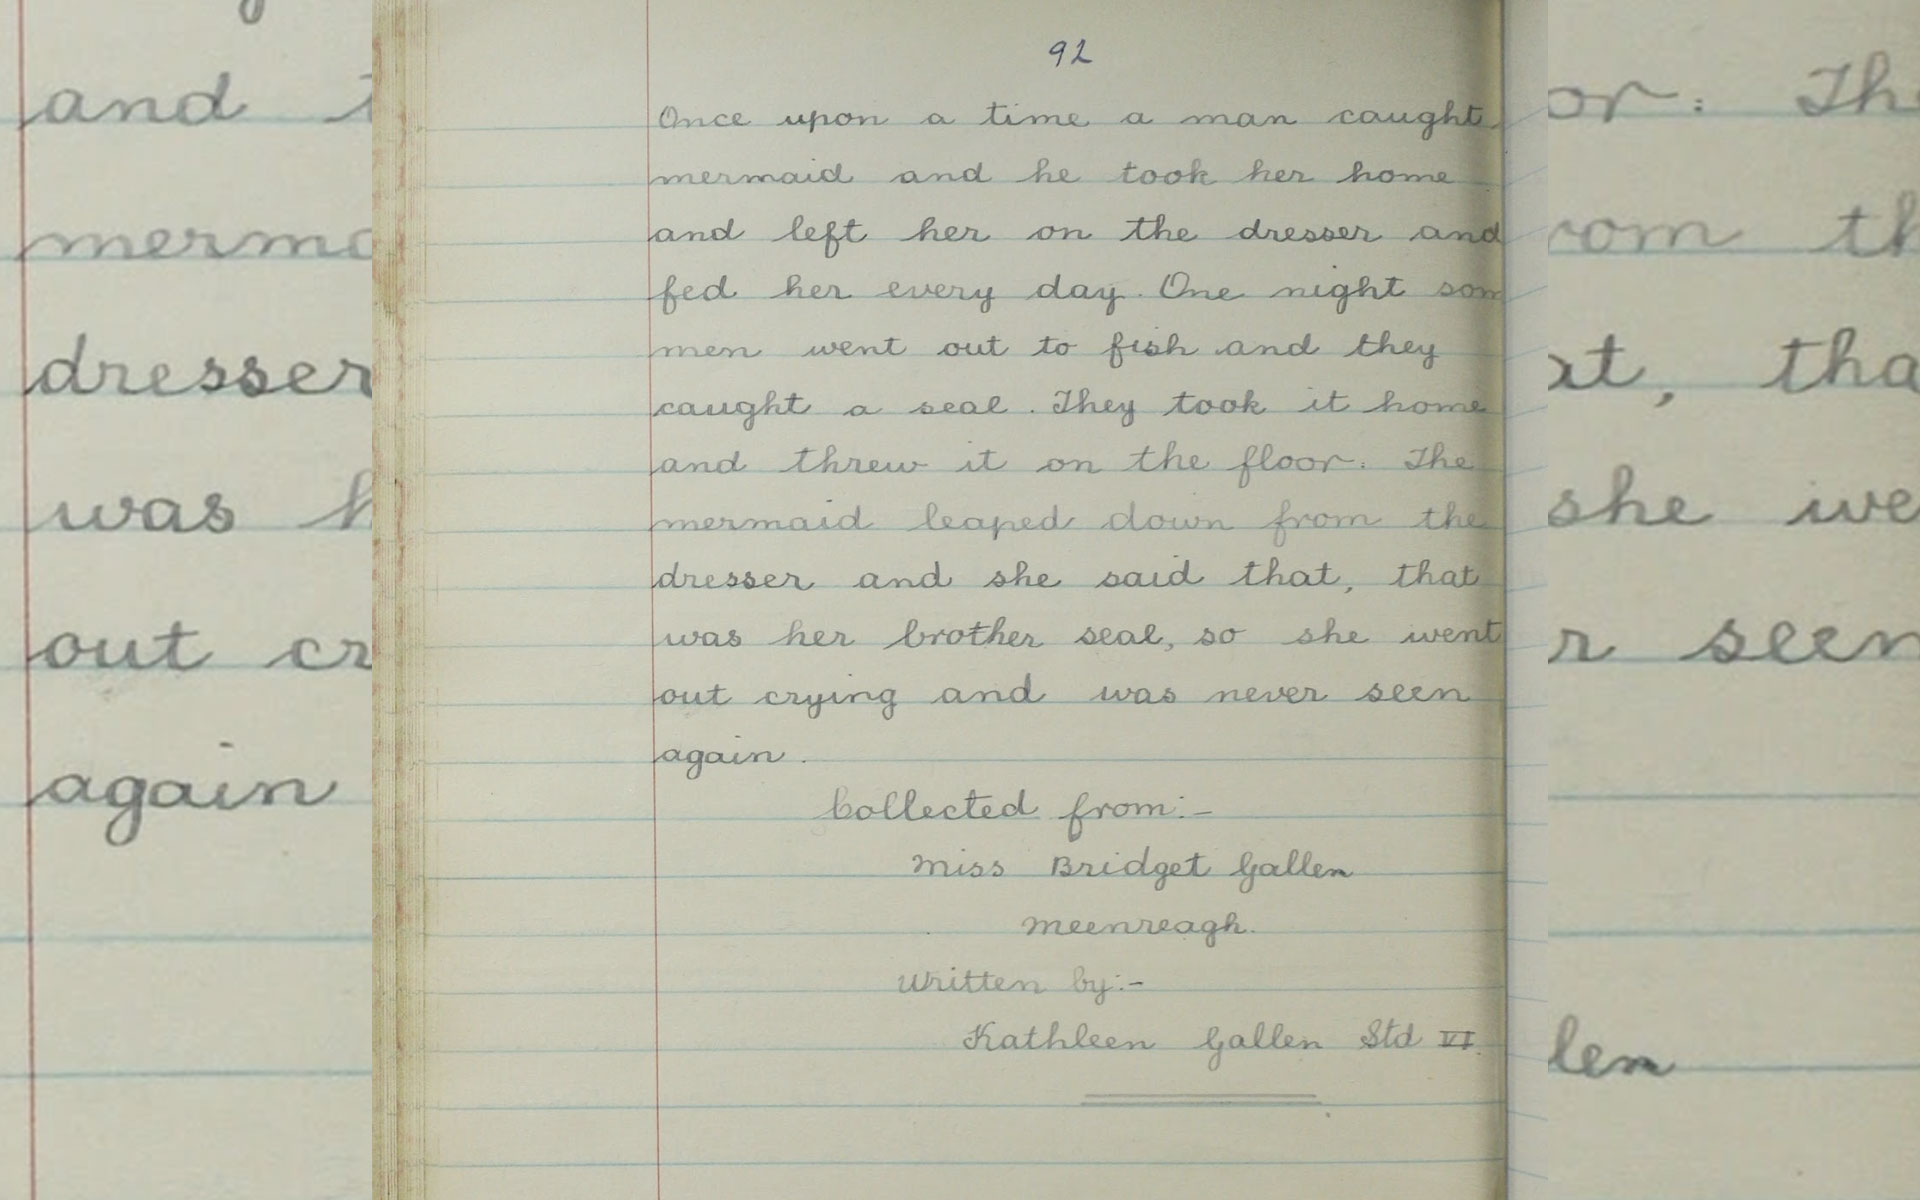 92
Once upon a time a man caught
mermaid and he took her home
and left her on the dresser and
fed her every day. One night som
men went out to fish and they
caught a seal. They took it home
and threw it on the floor. The
mermaid leaped down from the
dresser and she said that, that
was her brother seal, so she went
out crying and was never seen
again.
Collected from:-
Miss Bridget Gallen
Meenreagh.
Written by:-
Kathleen Gallen Std VI.